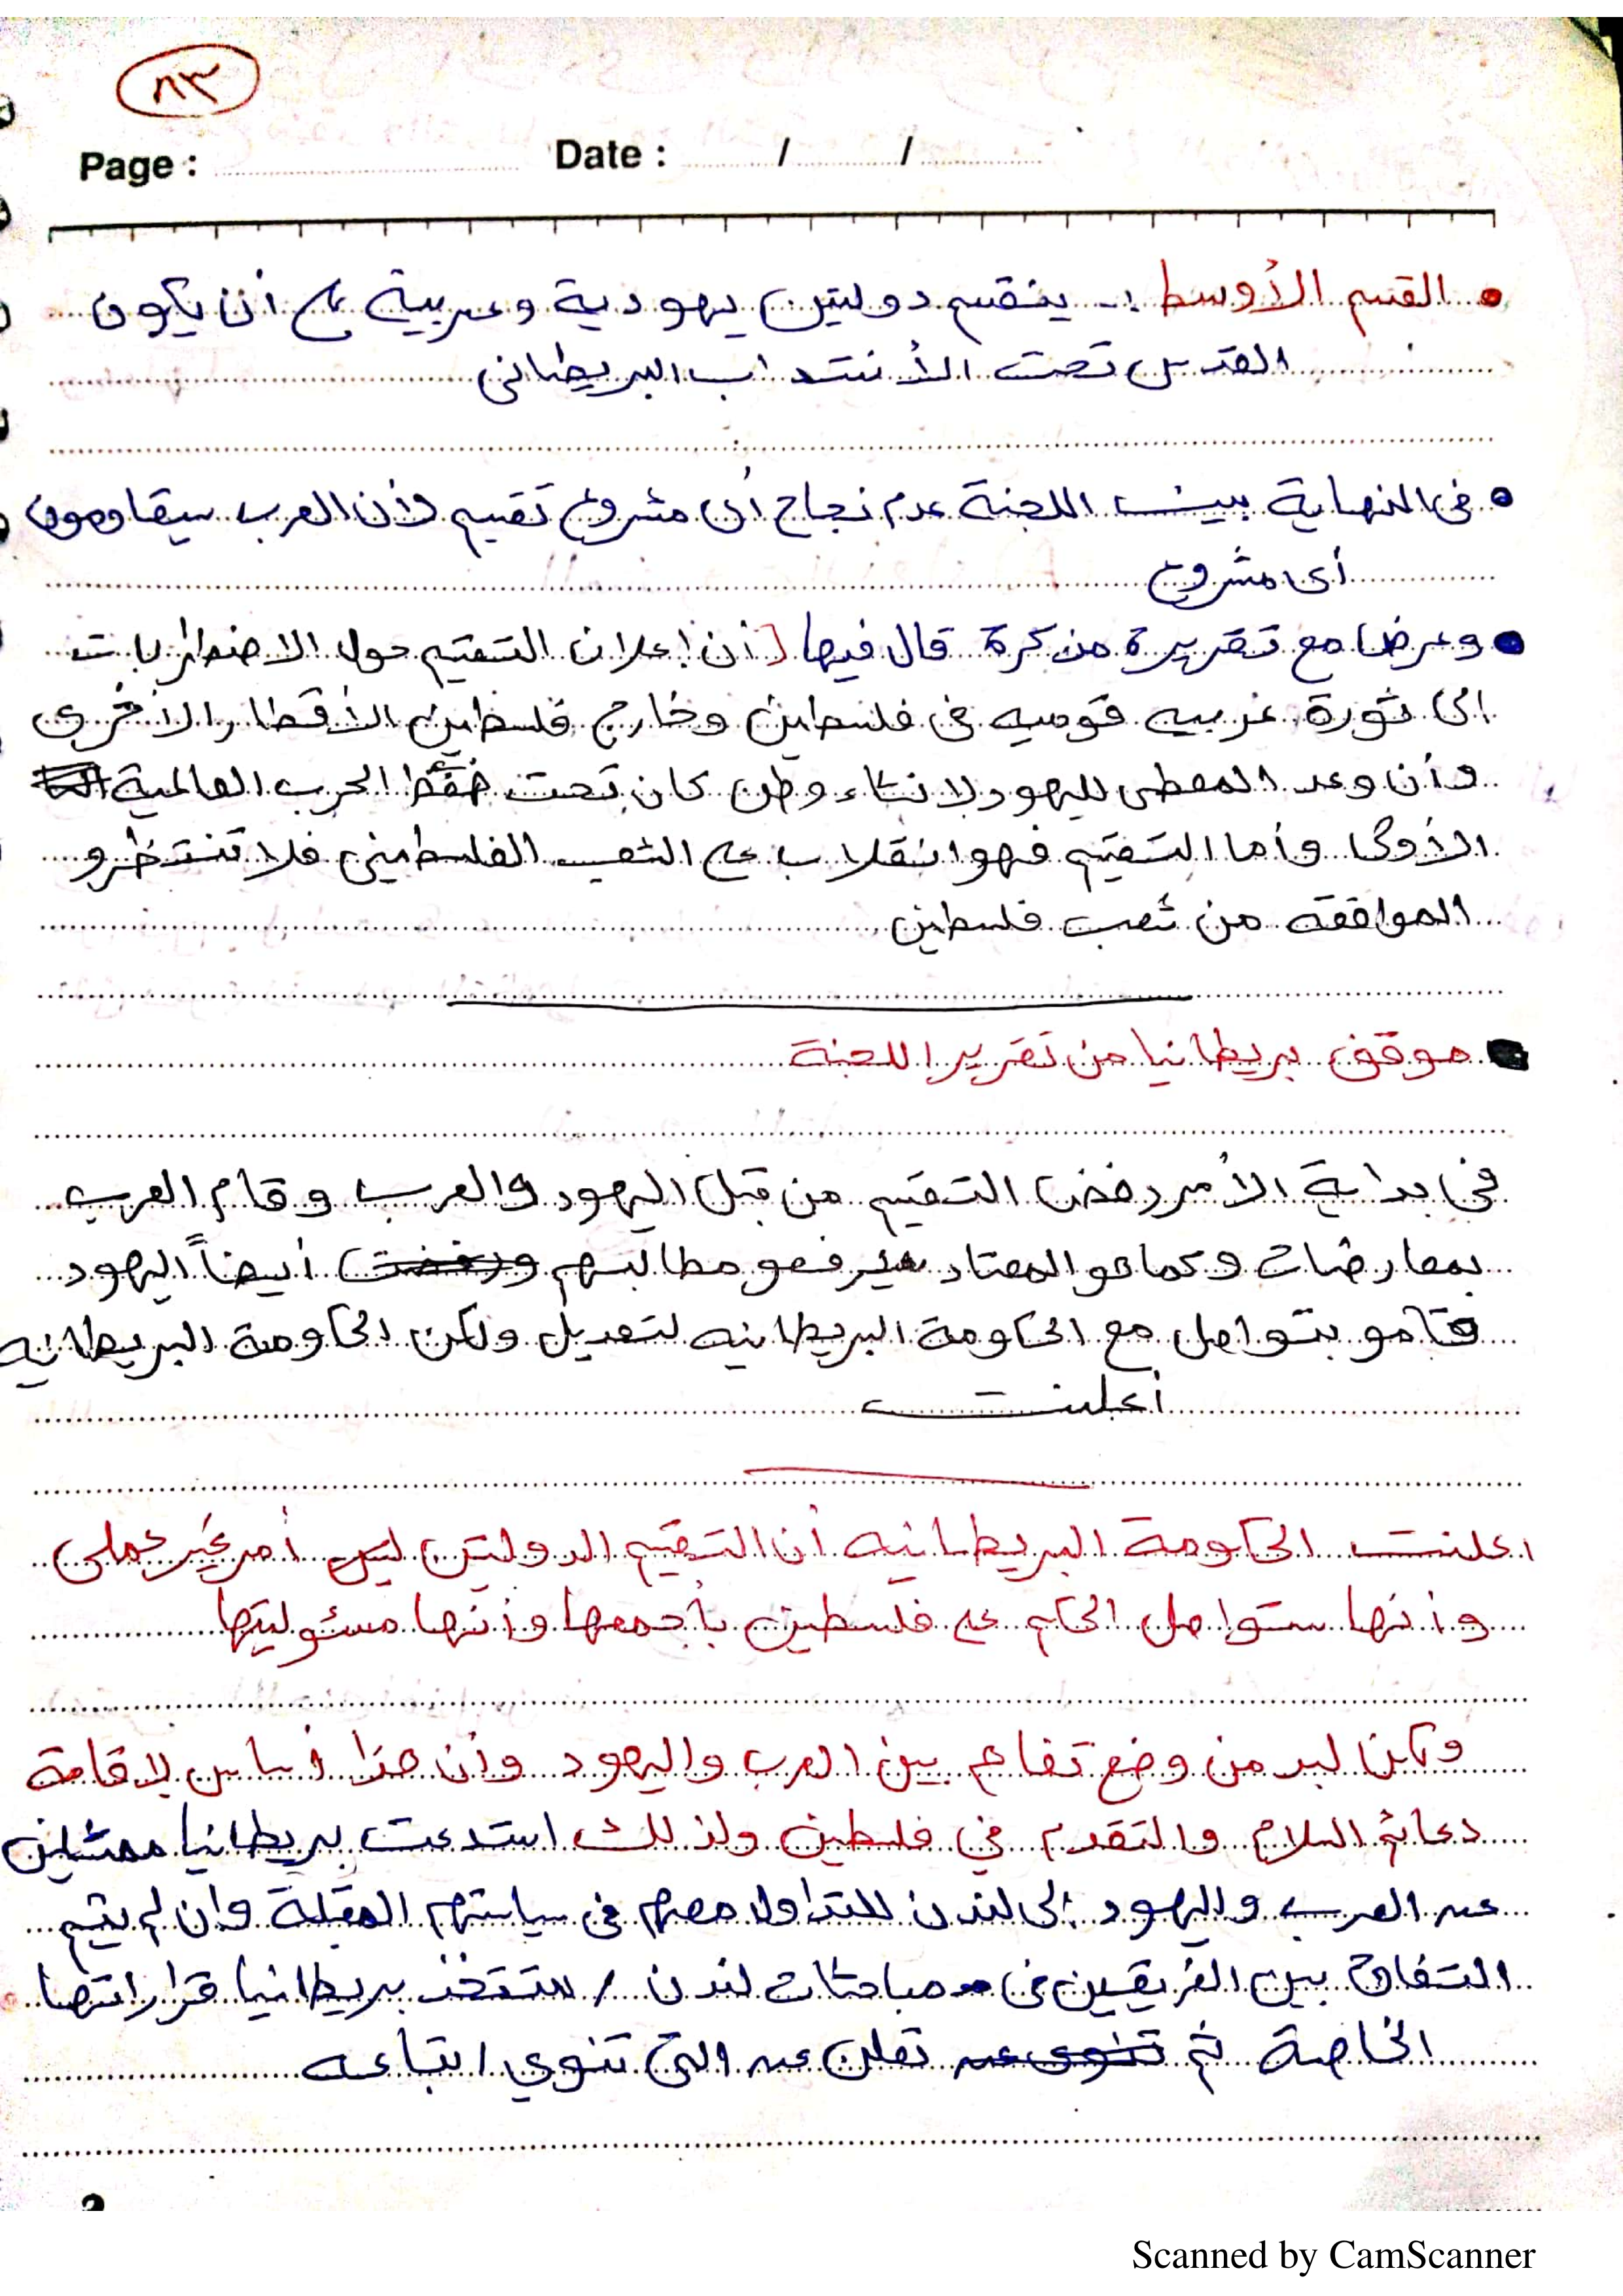 ٨٣
Page : Date : / /
• القسم الأوسط :- ينقسم دولتين يهودية وعربية على أن يكون
القدس تحت الأنتداب البريطانى
• فى النهاية بينت اللجنة عدم نجاح أى مشروع تقسيم وأن العرب سيقاومون
أى مشروع
• وعرض مع تقريرة مذكرة قال فيها [أن إعلان التقسيم حول الاضطرابات
الى ثورة عربيه قوميه فى فلسطين وخارج فلسطين الأقطار الأخرى
وأن وعد المعطى لليهود لانشاء وطن كان تحت ضغط الحرب العالمية
الأولى وأما التقسيم فهو انقلاب على الشعب الفلسطينى فلا تنتظرو
الموافقه من شعب فلسطين
موقف بريطانيا من تقرير اللجنة
فى بداية الأمر رفض التقسيم من قبل اليهود والعرب وقام العرب
بمعارضات وكما هو المعتاد يرفعو مطالبهم ورفضت أيضاً اليهود
قامو بتواصل مع الحكومة البريطانيه لتعديل ولكن الحكومة البريطانيه
أعلنت
اعلنت الحكومة البريطانيه أن التقسيم الدولتين ليس أمر غير عملى
وأنها ستواصل الحكم على فلسطين بأجمعها وأنها مسئوليتها
ولكن لبد من وضع تفاهم بين العرب واليهود وأن هذا أساس لاقامة
دعائم السلام والتقدم في فلسطين ولذلك استدعت بريطانيا ممثلين
عن العرب واليهود إلى لندن للتداول معهم فى سياستهم المقبلة وان لم يتم
التفاوض بين الفريقين فى مباحثات لندن / ستتخذ بريطانيا قراراتها
الخاصة ثم تنوى عن تعلن عن التى تنوي اتباعه
Scanned by CamScanner